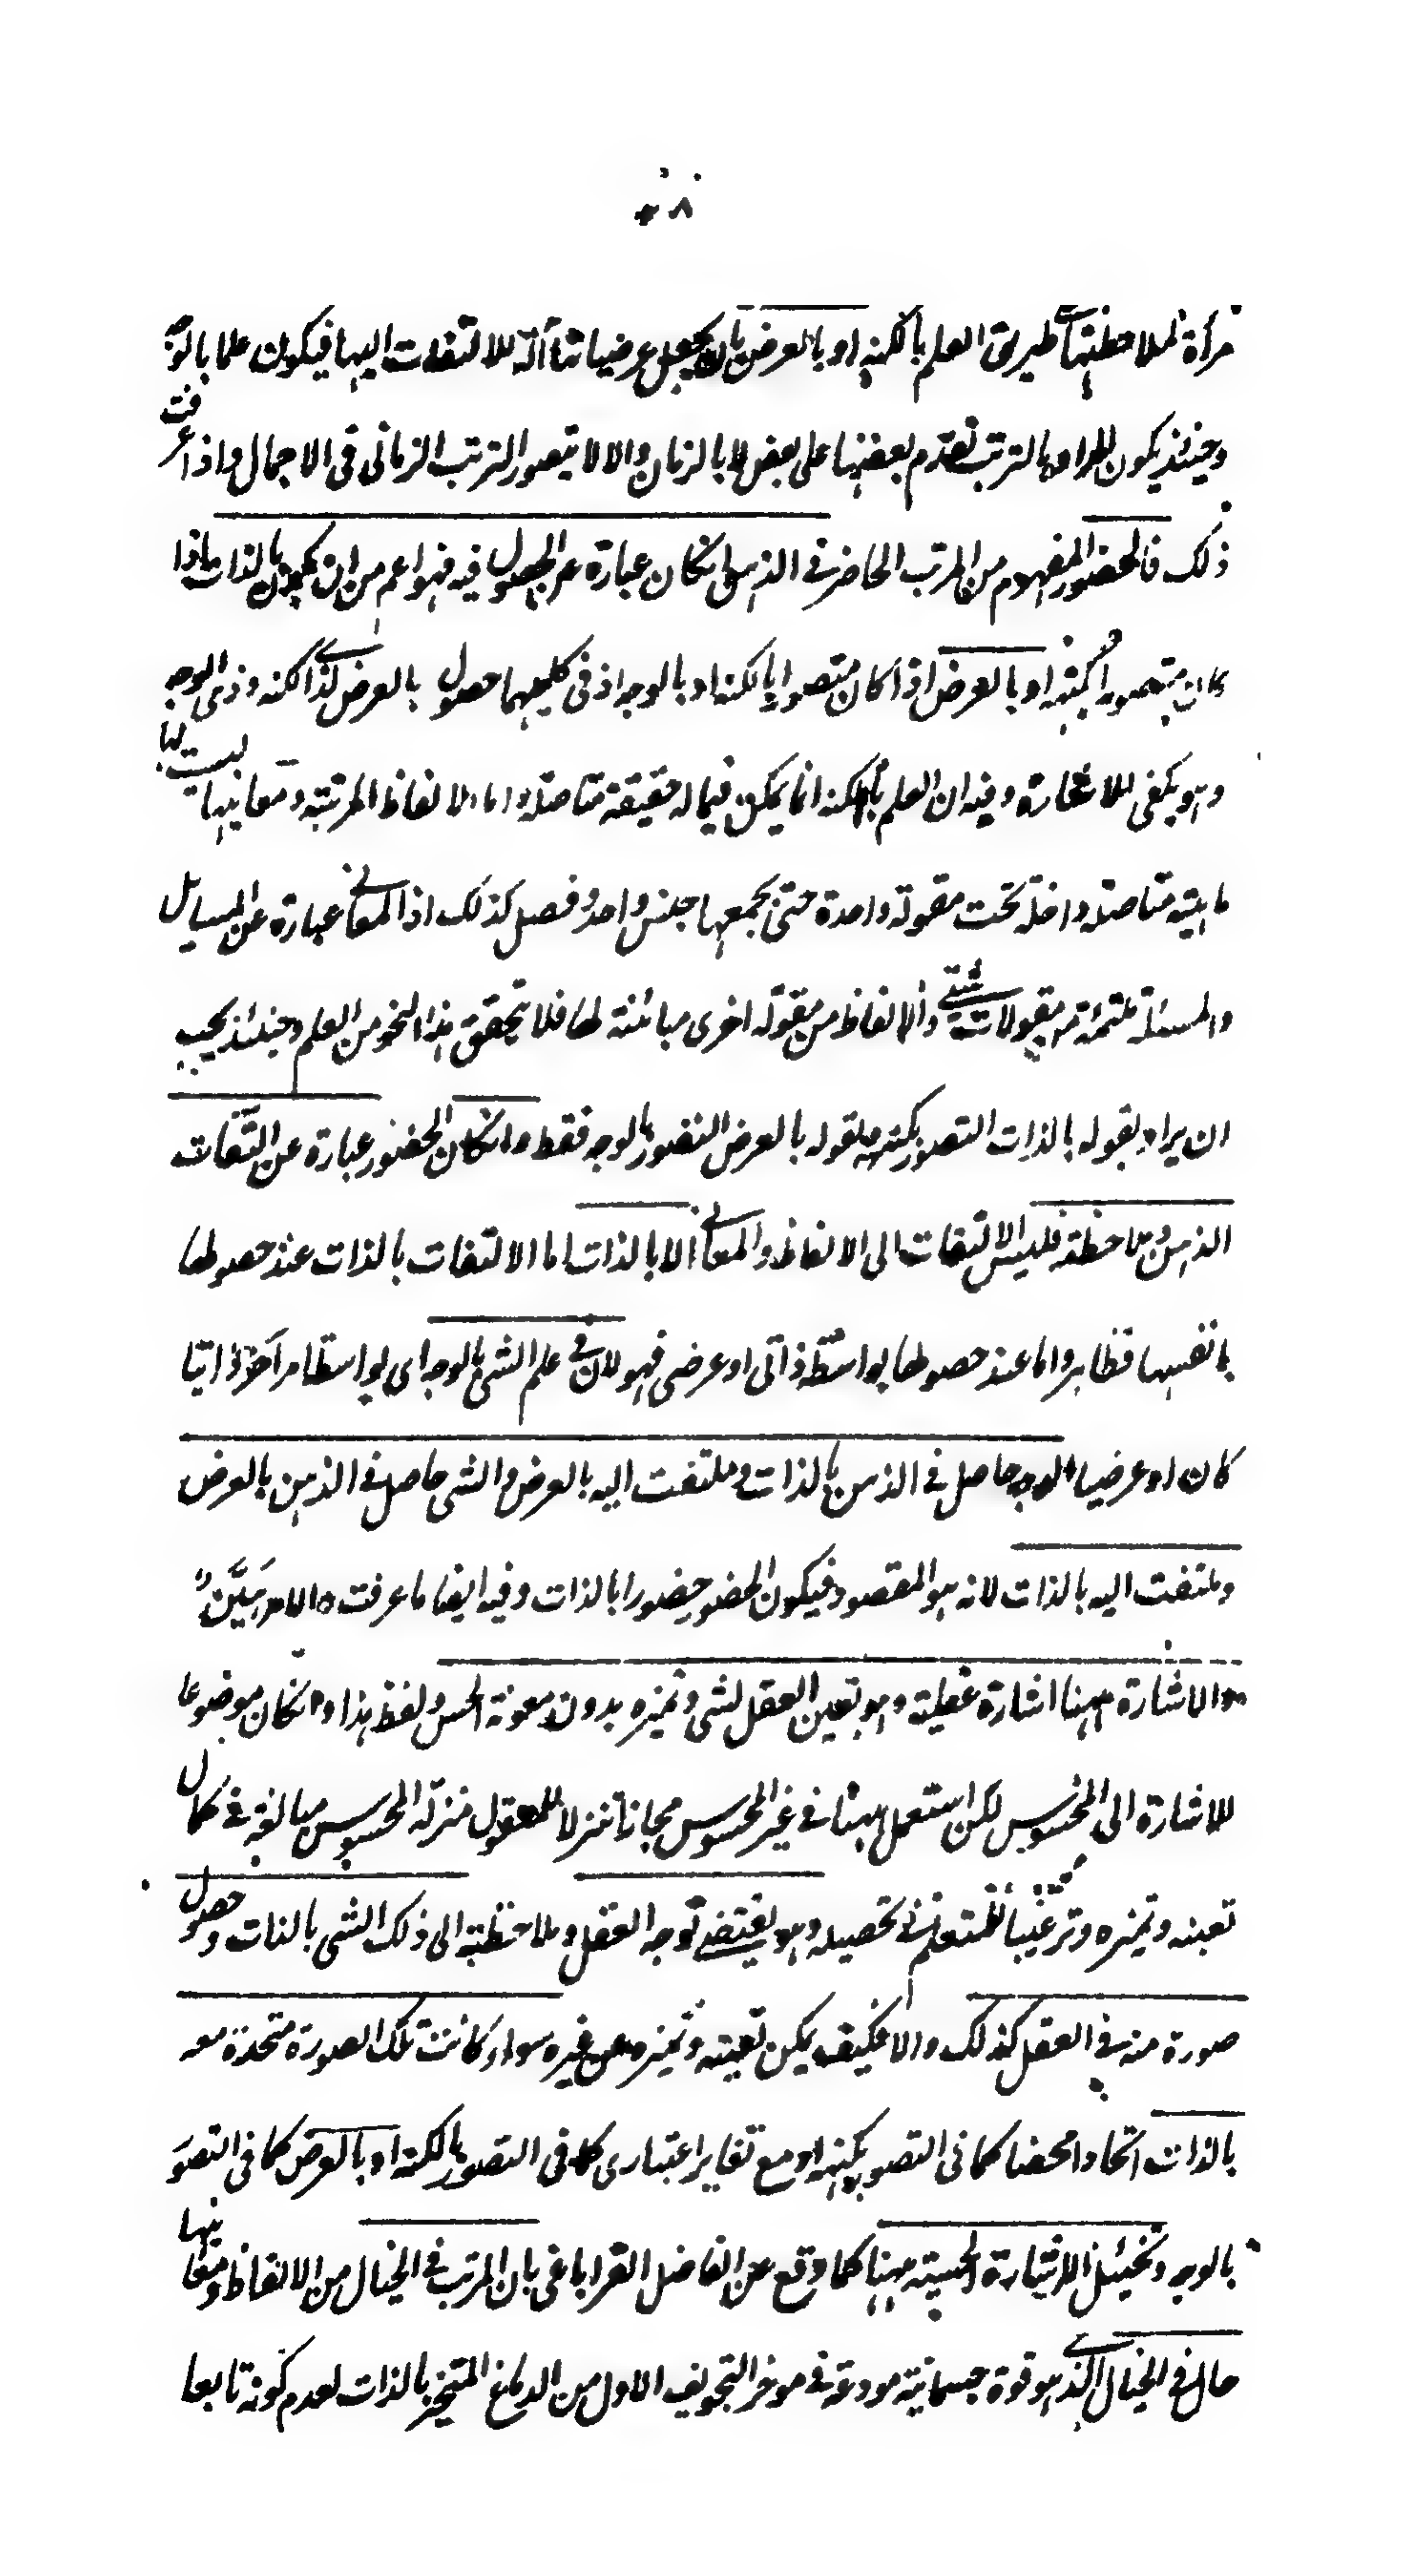 ٨
مرأة لملاحظتها على طريق العلم بالكنه او بالعرض بان يجعل عرضياتها آلة للالتفات اليها فيكون علما بالوجه
وحينئذ يكون المراد بالترتب تقدم بعضها على بعض لا بالزمان والا لا يتصور الترتب الزمانى فى الاجمال واذا عرفت
ذلك فالحضور المفهوم من المرتب الحاضر فى الذهن ان كان عبارة عن الحصول فيه فهو اعم من ان يكون بالذات اذا
كان متصورا بكنهه او بالعرض اذا كان متصورا بالكنه او بالوجه اذ فى كليهما حصول بالعرض لذى الكنه وذى الوجه
وهو يكفى للاشارة وفيه ان العلم بالكنه انما يمكن فيما له حقيقة متاصلة واما الالفاظ المرتبة ومعانيها ليست لها
ماهية متاصلة داخلة تحت مقولة واحدة حتى يجمعها جنس واحد وفصل كذلك اذ المعانى عبارة عن المسايل
والمسئلة ملتئمة من مقولات شتى والالفاظ من مقولة اخرى مبائنة لها فلا يتحقق هذا النحو من العلم وحينئذ يجب
ان يراد بقوله بالذات التصور بكنهه وبقوله بالعرض التصور بالوجه فقط وان كان الحضور عبارة عن التفات
الذهن وملاحظته فليس الالتفات الى الالفاظ والمعانى الا بالذات اما الالتفات بالذات عند حصولها
بانفسها فظاهر واما عند حصولها بواسطة ذاتى او عرضى فهو لان فى علم الشئ بالوجه اى بواسطة امر آخر ذاتيا
كان او عرضيا الوجه حاصل فى الذهن بالذات وملتفت اليه بالعرض والشى حاصل فى الذهن بالعرض
وملتفت اليه بالذات لانه هو المقصود فيكون الحضور حضورا بالذات وفيه ايضا ما عرفت والامر هَيِّنٌ
والاشارة ههنا اشارة عقلية وهو تعين العقل لشى وتميزه بدون معونة الحس ولفظ هذا وان كان موضوعا
للاشارة الى المحسوس لكن استعمل ههنا فى غير المحسوس مجازا تنزلا للمعقول منزلة المحسوس مبالغة فى كمال
تعينه وتميزه وترغيبا للمتعلم فى تحصيله وهو يقتضى توجه العقل وملاحظته الى ذلك الشى بالذات وحصول
صورة منه فى العقل كذلك والا فكيف يمكن تعينه وتميزه عن غيره سواء كانت تلك الصورة متحدة معه
بالذات اتحادا محضا كما فى التصور بكنهه او مع تغاير اعتبارى كما فى التصور بالكنه او بالعرض كما فى التصور
بالوجه وتخييل الاشارة الحسية ههنا كما وقع عن الفاضل القراباغى بان المرتب فى الخيال من الالفاظ ومعانيها
حال فى الخيال الذى هو قوة جسمانية مودعة فى موخر التجويف الاول من الدماغ المتحيز بالذات لعدم كونه تابعا